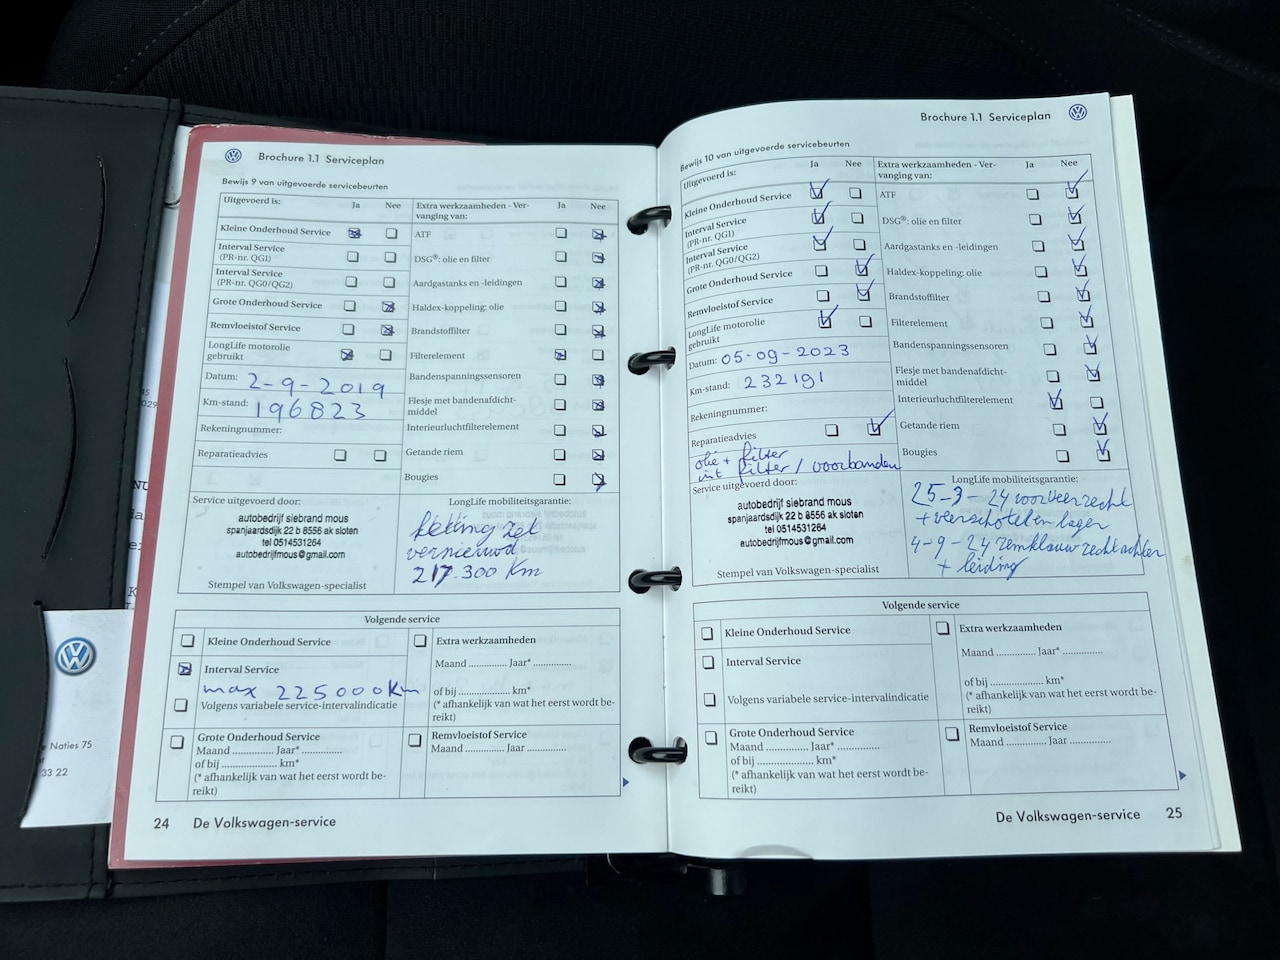 Brochure 1.1 Serviceplan
Bewijs 9 van uitgevoerde servicebeurten
Uitgevoerd is:
Ja Nee
Kleine Onderhoud Service
Interval Service
(PR-nr. QG1)
Interval Service
(PR-nr. QG0/QG2)
Grote Onderhoud Service
Remvloeistof Service
LongLife motorolie
gebruikt
Datum: 2-9-2019
Km-stand: 196823
Rekeningnummer:
Reparatieadvies
Extra werkzaamheden - Ver-
vanging van:
Ja Nee
ATF
DSG®: olie en filter
Aardgastanks en -leidingen
Haldex-koppeling: olie
Brandstoffilter
Filterelement
Bandenspanningssensoren
Flesje met bandenafdicht-
middel
Interieurluchtfilterelement
Getande riem
Bougies
Service uitgevoerd door:
autobedrijf siebrand mous
spanjaardsdijk 22 b 8556 ak sloten
tel 0514531264
autobedrijfmous@gmail.com
Stempel van Volkswagen-specialist
LongLife mobiliteitsgarantie:
ketting zet
vernieuwd
217.300 Km
Volgende service
Kleine Onderhoud Service
Interval Service
max 225000km
Volgens variabele service-intervalindicatie
Grote Onderhoud Service
Maand .............. Jaar* ..............
of bij .................... km*
(* afhankelijk van wat het eerst wordt be-
reikt)
Extra werkzaamheden
Maand .............. Jaar* ..............
of bij .................... km*
(* afhankelijk van wat het eerst wordt be-
reikt)
Remvloeistof Service
Maand .............. Jaar ..............
24 De Volkswagen-service
Naties 75
33 22
Brochure 1.1 Serviceplan
Bewijs 10 van uitgevoerde servicebeurten
Uitgevoerd is:
Ja Nee
Kleine Onderhoud Service
Interval Service
(PR-nr. QG1)
Interval Service
(PR-nr. QG0/QG2)
Grote Onderhoud Service
Remvloeistof Service
LongLife motorolie
gebruikt
Datum: 05-09-2023
Km-stand: 232191
Rekeningnummer:
Reparatieadvies
olie + filter
int filter / voorbanden
Extra werkzaamheden - Ver-
vanging van:
Ja Nee
ATF
DSG®: olie en filter
Aardgastanks en -leidingen
Haldex-koppeling: olie
Brandstoffilter
Filterelement
Bandenspanningssensoren
Flesje met bandenafdicht-
middel
Interieurluchtfilterelement
Getande riem
Bougies
Service uitgevoerd door:
autobedrijf siebrand mous
spanjaardsdijk 22 b 8556 ak sloten
tel 0514531264
autobedrijfmous@gmail.com
Stempel van Volkswagen-specialist
LongLife mobiliteitsgarantie:
25-3-24 voorveer recht
+ veerschotel en lager
4-9-24 remklauw recht achter
+ leiding
Volgende service
Kleine Onderhoud Service
Interval Service
Volgens variabele service-intervalindicatie
Grote Onderhoud Service
Maand .............. Jaar* ..............
of bij .................... km*
(* afhankelijk van wat het eerst wordt be-
reikt)
Extra werkzaamheden
Maand .............. Jaar* ..............
of bij .................... km*
(* afhankelijk van wat het eerst wordt be-
reikt)
Remvloeistof Service
Maand .............. Jaar ..............
De Volkswagen-service 25